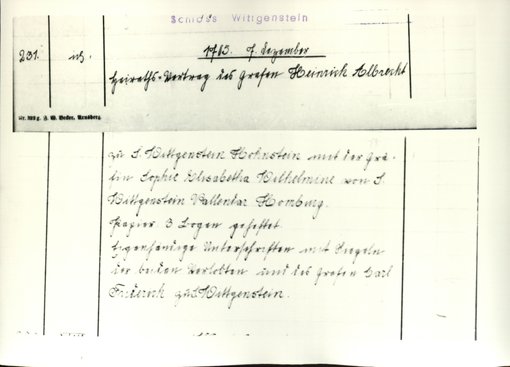 Schloss Wittgenstein
231. 1713. 7. Dezember
Heiraths-Vertrag des Grafen Heinrich Albrecht
Nr. 102g. F. W. Becker, Arnsberg.
zu S. Wittgenstein Hohnstein mit der Grä-
fin Sophie Elisabetha Wilhelmine von S.
Wittgenstein Vallendar Homburg.
Papier 3 Bogen geheftet.
Eigenhändige Unterschriften mit Siegeln
der beiden Verlobten und des Grafen Carl
Friderich zu S. Wittgenstein.